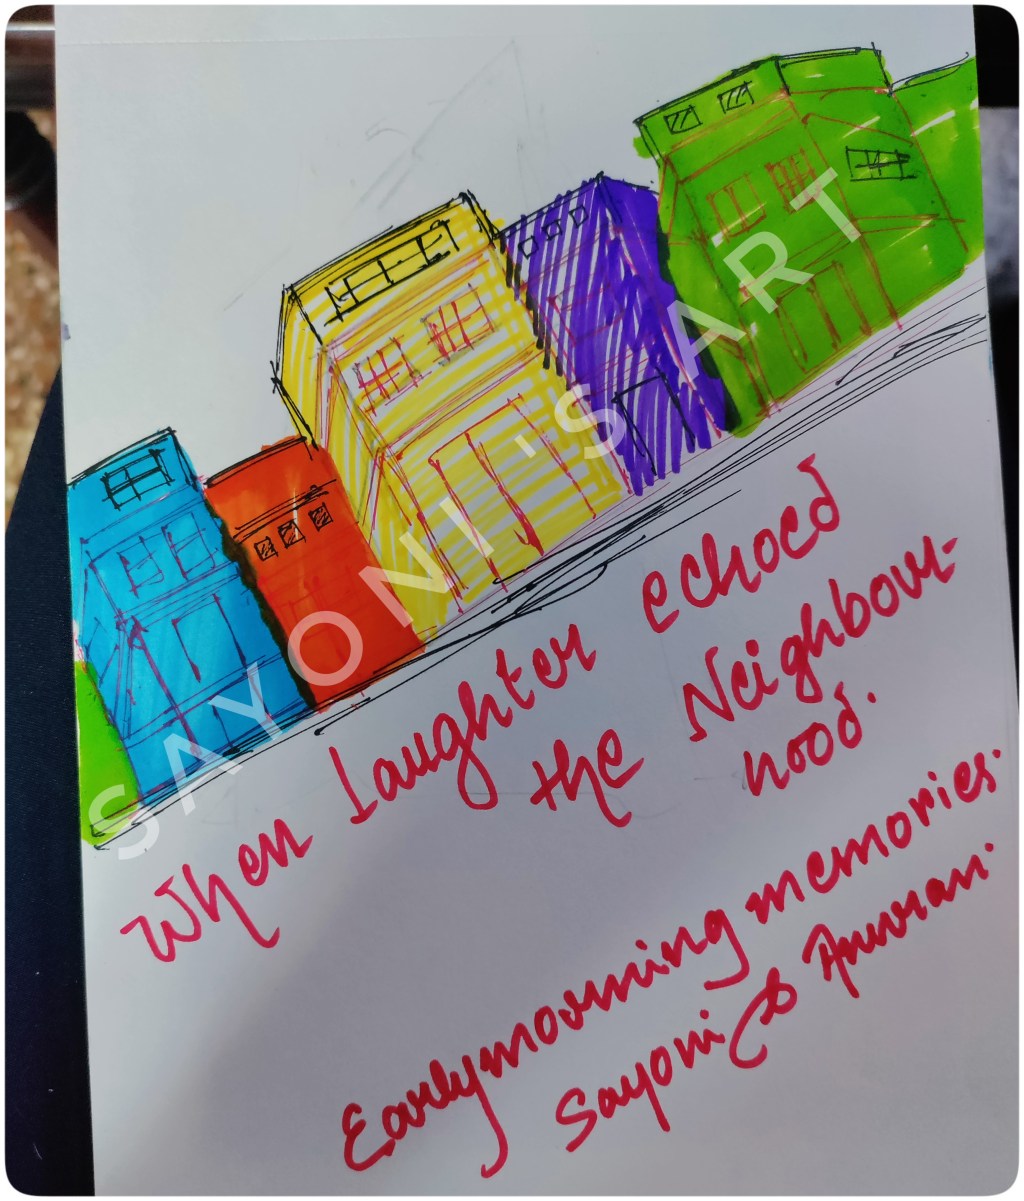 When Laughter echoed
the Neighbour-
hood.
Earlymorning memories.
Sayoni &
SAYONI'S ART